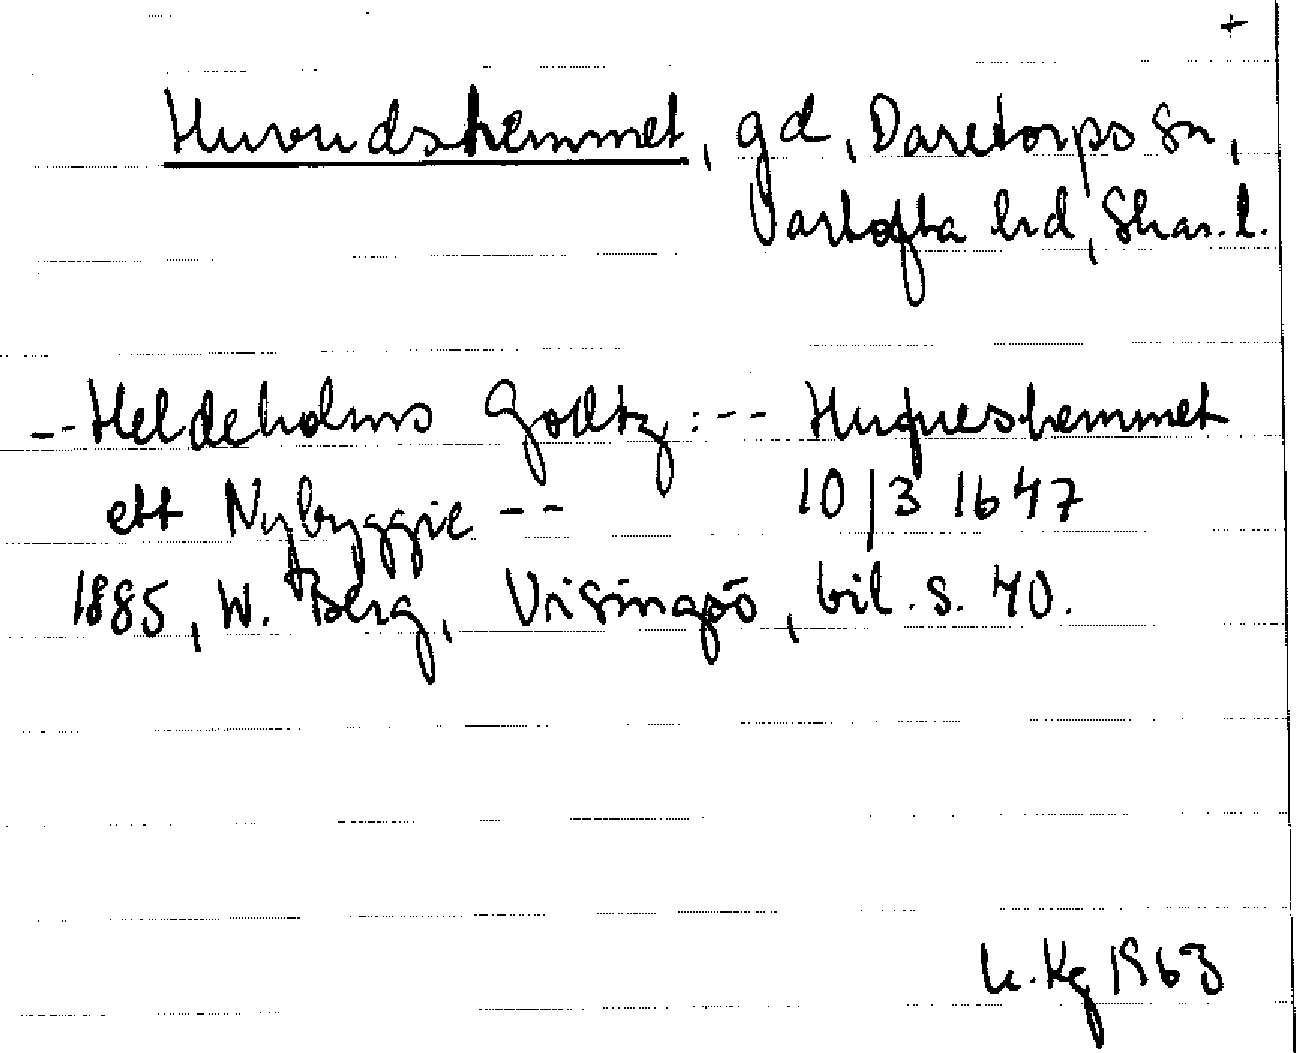 +
Huvudshemmet, gd, Daretorps sn,
Vartofta hd, Skar. l.
-- Heldeholms Godtz: -- Hufueshemmet
ett Nybyggie -- 10/3 1647
1885, W. Berg, Visingsö, bil. s. 40.
K. Kg 1963